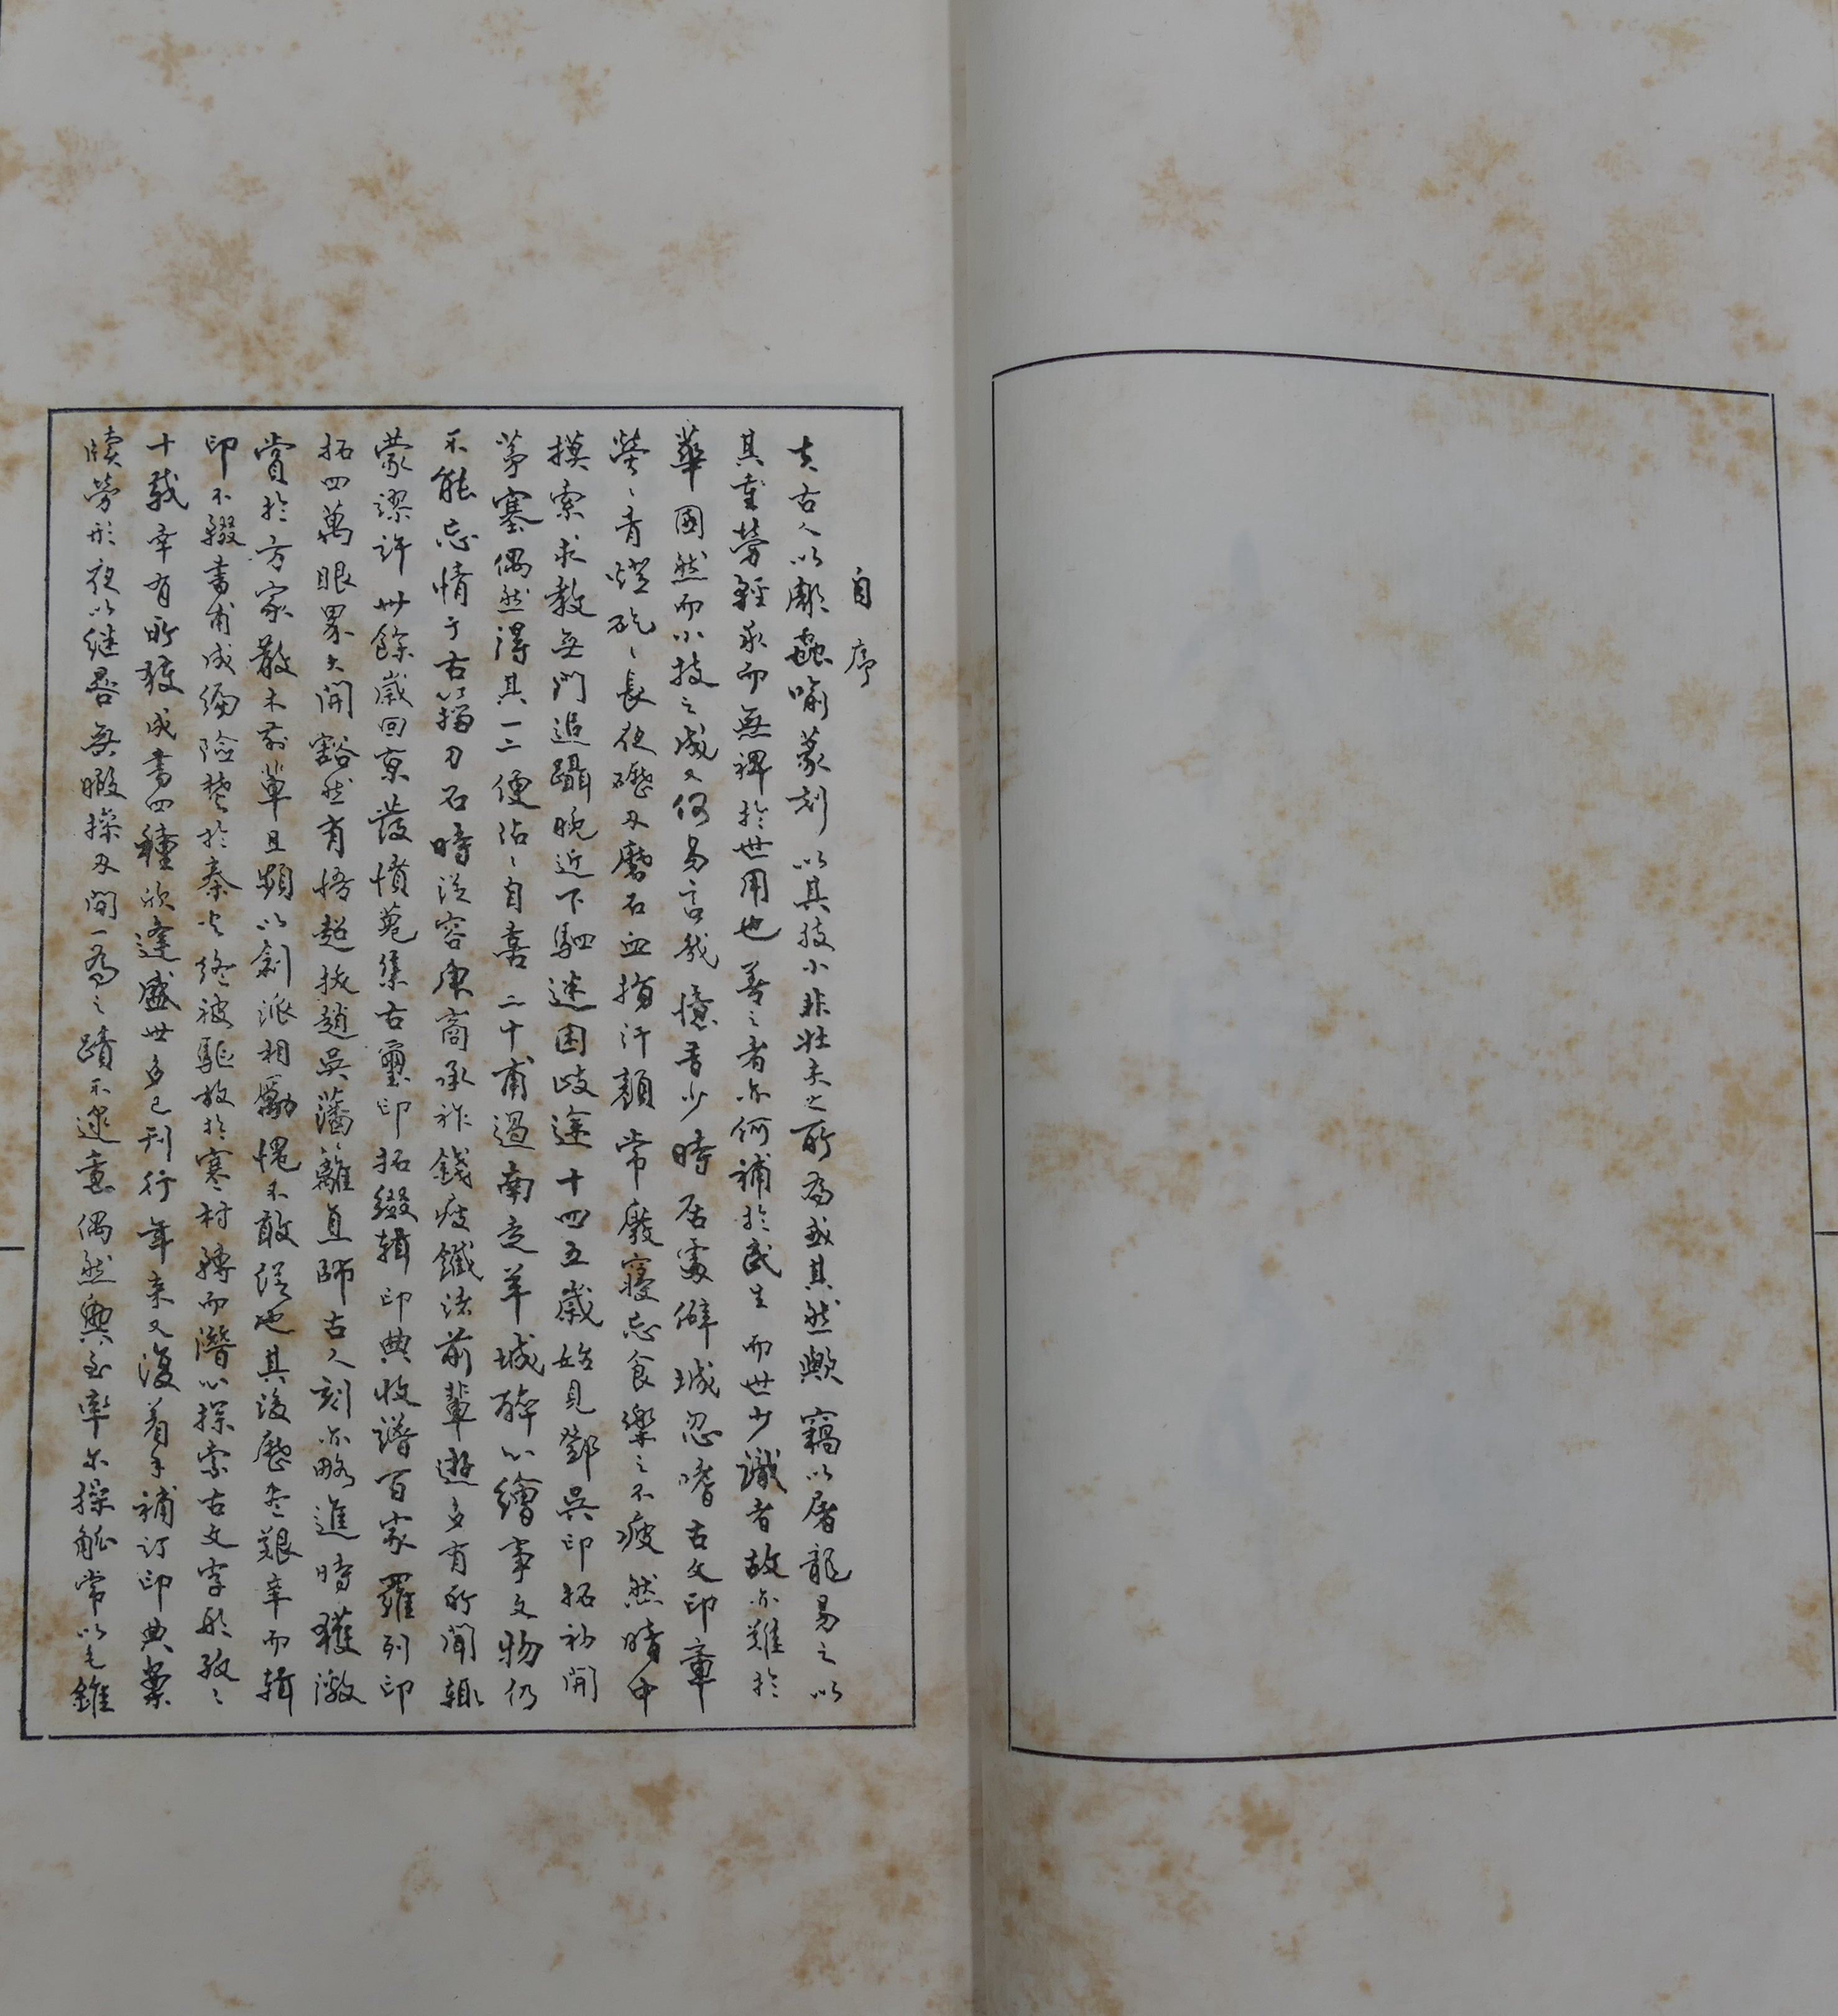 自序
夫古人以彫蟲喻篆刻以其技小非壯夫之所為歟其然歟竊以屠龍易之以
其重勞輕承而無裨於世用也善之者亦何補於民生而世少識者故亦難於
華國然而小技之成又何易言哉憶昔少時居處僻城忍嗜古文印章
熒〻青燈矻〻長夜礪刃磨石血指汗顏常廢寢忘食樂之不疲然暗中
摸索求教無門追躡晚近下駟迷困歧途十四五歲始見鄧吳印拓初開
茅塞偶然得其一二便沾〻自喜二十甫過南走羊城醉心繪事文物仍
不能忘情于古籀刀石時從容庚商承祚錢瘦鐵諸前輩遊多有所聞輒
蒙謬許卅餘歲回京發憤蒐集古璽印拓綴輯印典收譜百家羅列印
拓四萬眼界大開豁然有悟超拔趙吳藩籬直師古人刻亦略進時獲激
賞於方家散木前輩且頻以創派相勵愧不敢從也其後歷盡艱辛而輯
印不輟書甫成編險焚於秦火終被驅放於寒村轉而潛心探索古文字形孜〻
十載幸有所獲成書四種欣逢盛世多已刊行年來又復着手補訂印典案
牘勞形夜以繼晷無暇操刃間一為之躓不逮意偶然興至率尔操觚常以毛錐